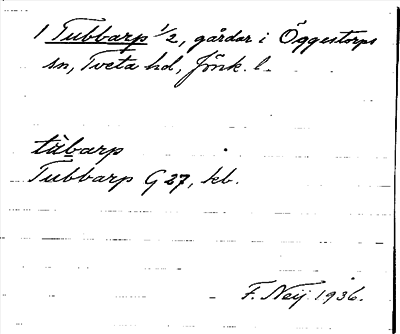 1 Tubbarp 1/2, gårdar i Öggestorps
sn, Tveta hd, Jönk. l.
tùbarp
Tubbarp G 27, kb.
F. Neij 1936.